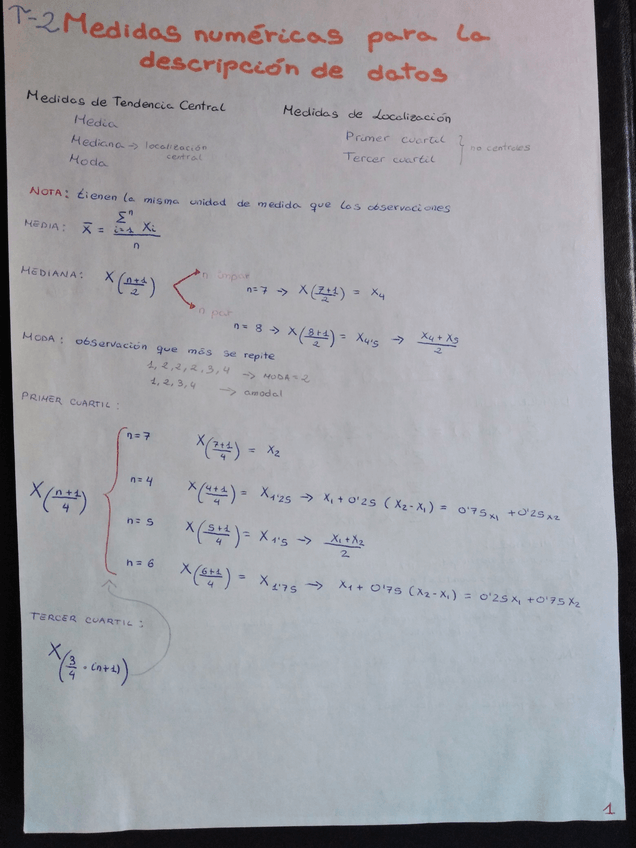 T-2 Medidas numéricas para la
descripción de datos
Medidas de Tendencia Central
Media
Mediana → localización
central
Moda
Medidas de Localización
Primer cuartil
Tercer cuartil
no centrales
NOTA: tienen la misma unidad de medida que las observaciones
MEDIA: X̄ = Σⁿ i=1 Xi / n
MEDIANA: X((n+1)/2)
n impar
n=7 → X((7+1)/2) = X4
n par
n = 8 → X((8+1)/2) = X4'5 → (X4+X5)/2
MODA: observación que más se repite
1, 2, 2, 2, 3, 4 → MODA=2
1, 2, 3, 4 → amodal
PRIMER CUARTIL:
X((n+1)/4)
n=7 X((7+1)/4) = X2
n=4 X((4+1)/4) = X1'25 → X1 + 0'25 (X2-X1) = 0'75X1 + 0'25X2
n=5 X((5+1)/4) = X1'5 → (X1+X2)/2
n=6 X((6+1)/4) = X1'75 → X1 + 0'75 (X2-X1) = 0'25X1 + 0'75X2
TERCER CUARTIL:
X(3/4 · (n+1))
1